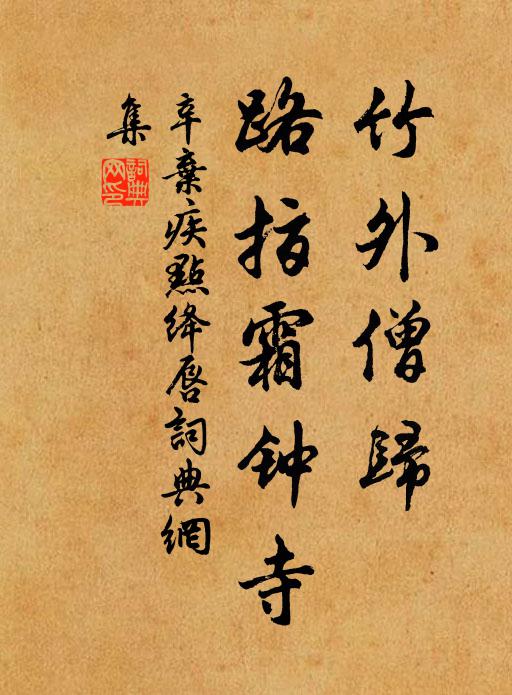 竹外僧歸
路指霜钟寺
辛棄疾點绛唇詞典網
集
詞典網印